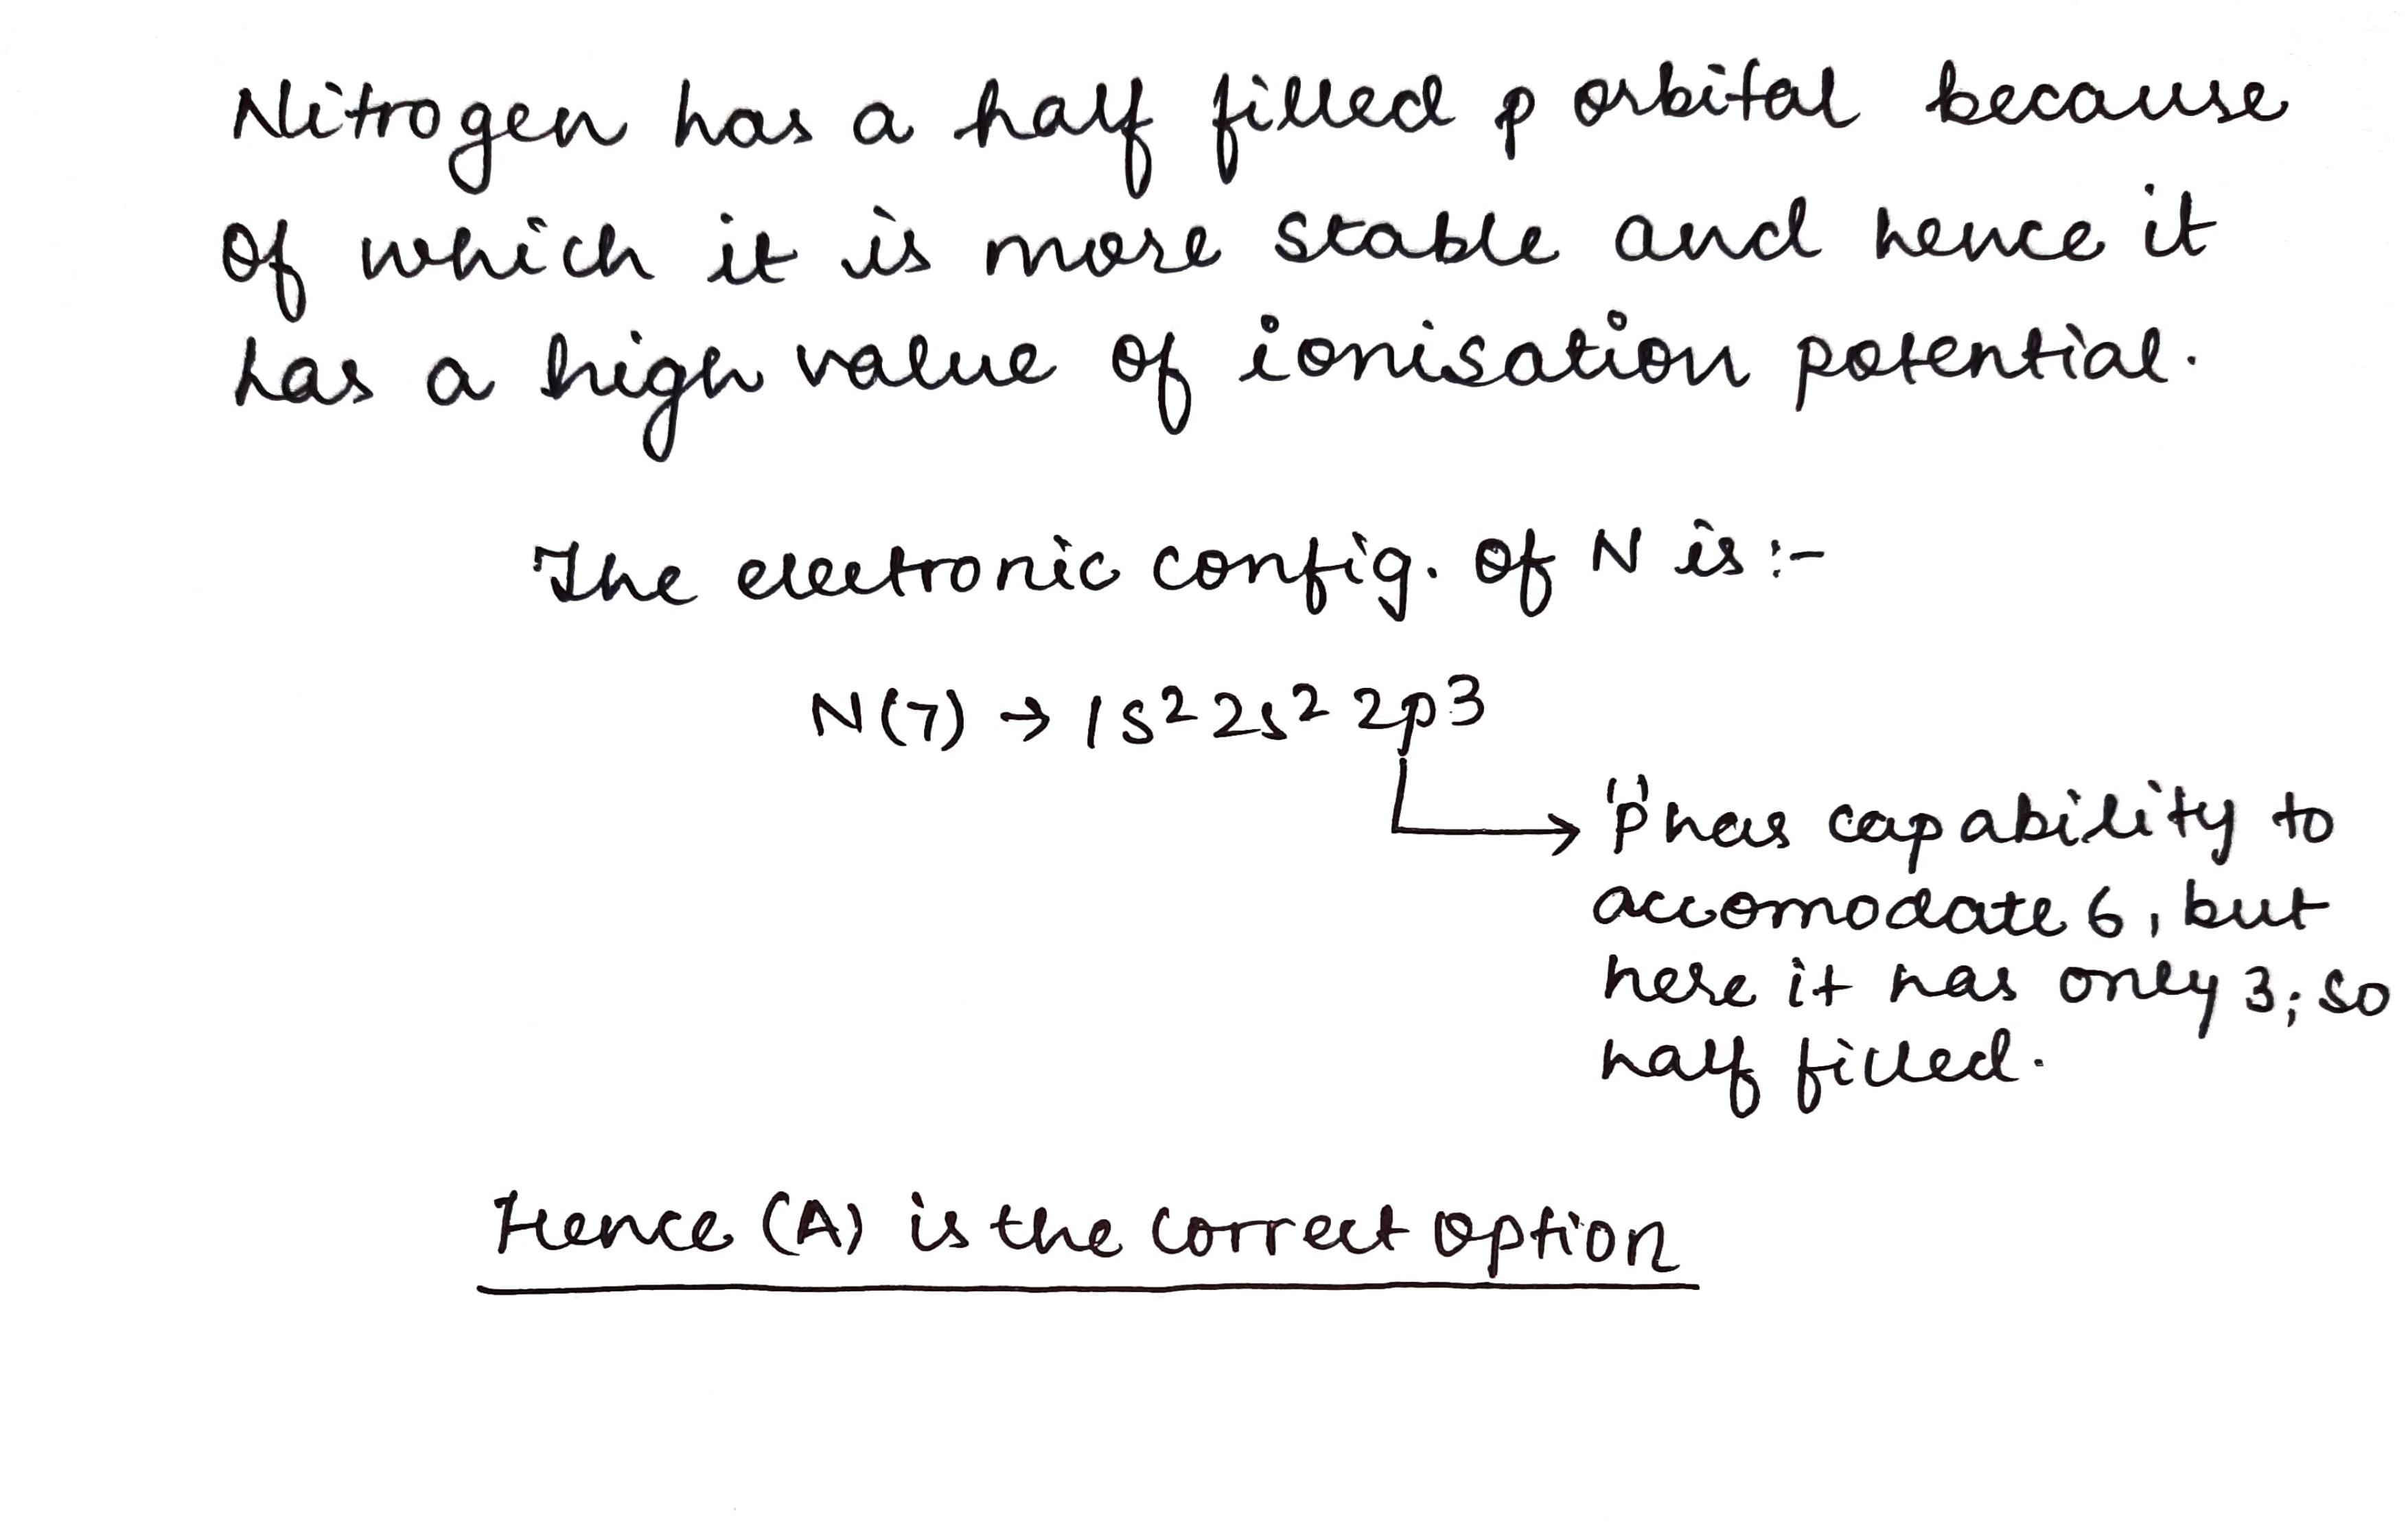 Nitrogen has a half filled p orbital because
of which it is more stable and hence it
has a high value of ionisation potential.
The electronic config. of N is :-
N(7) → 1s² 2s² 2p³
'p' has capability to
accomodate 6, but
here it has only 3; so
half filled.
Hence (A) is the correct option